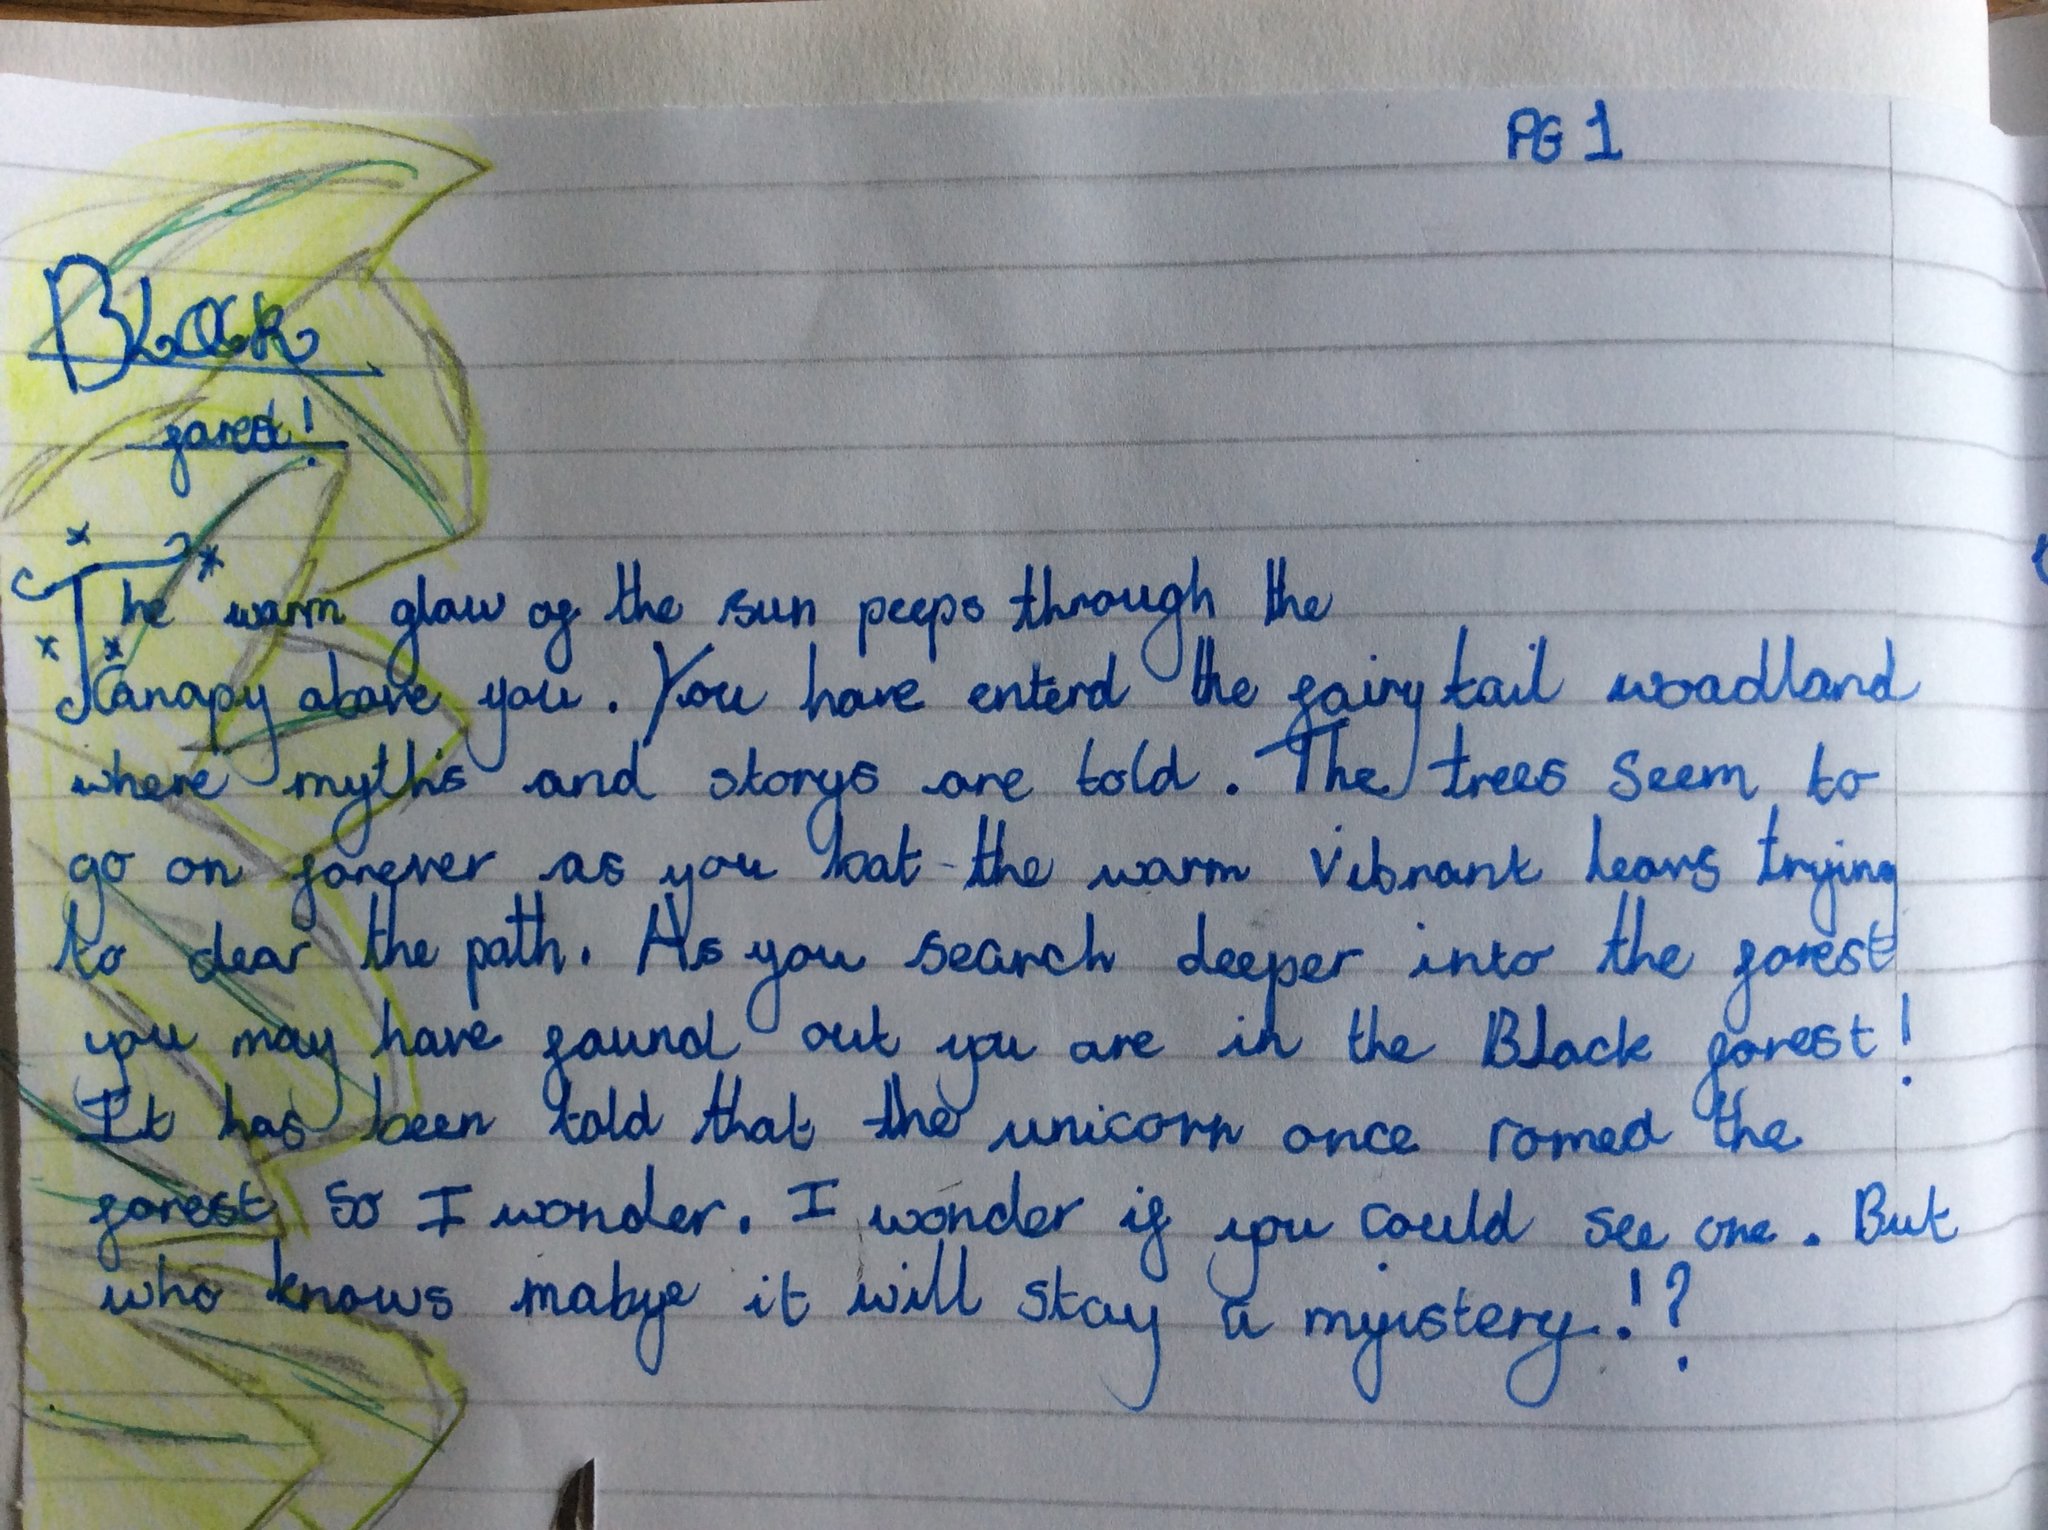 PG 1
Black
forest!
The warm glow of the sun peeps through the
canapy above you. You have enterd the fairy tail woodland
where myths and storys are told. The trees seem to
go on forever as you bat the warm vibrant leavs trying
to clear the path. As you search deeper into the forest
you may have found out you are in the Black forest!
It has been told that the unicorn once romed the
forest so I wonder. I wonder if you could see one. But
who knows mabye it will stay a myistery!?